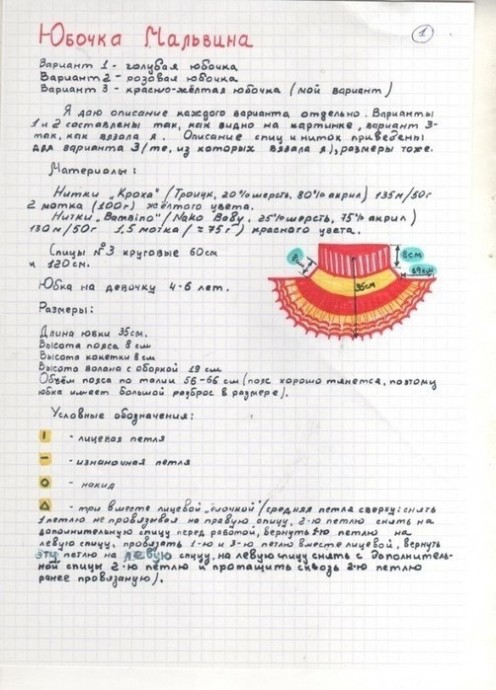 1
Юбочка Мальвина
Вариант 1 - голубая юбочка
Вариант 2 - розовая юбочка
Вариант 3 - красно-жёлтая юбочка (мой вариант)
Я даю описание каждого варианта отдельно. Варианты
1 и 2 составлены так, как видно на картинке, вариант 3-
так, как вязала я. Описание спиц и ниток приведены
для варианта 3 (те, из которых вязала я), размеры тоже.
Материалы:
Нитки „Кроха" (Троицк, 20% шерсть, 80% акрил) 135м/50г
2 мотка (100г) жёлтого цвета.
Нитки „Bambino" (Nako Baby, 25% шерсть, 75% акрил)
130м/50г 1,5 мотка (≈75г) красного цвета.
Спицы №3 круговые 60см
и 120см.
8см
8см
35см
19см
Юбка на девочку 4-6 лет.
Размеры:
Длина юбки 35см.
Высота пояса 8см
Высота кокетки 8см
Высота волана с оборкой 19 см
Объём пояса по талии 56-66 см (пояс хорошо тянется, поэтому
юбка имеет большой разброс в размере).
Условные обозначения:
I - лицевая петля
- - изнаночная петля
О - накид
△ - три вместе лицевой „ёлочкой" (средняя петля сверху: снять
1 петлю не провязывая на правую спицу, 2-ю петлю снять на
дополнительную спицу перед работой, вернуть 1-ю петлю на
левую спицу, провязать 1-ю и 3-ю петлю вместе лицевой, вернуть
эту петлю на левую спицу, на левую спицу снять с дополнитель-
ной спицы 2-ю петлю и протащить сквозь 2-ю петлю
ранее провязаную).